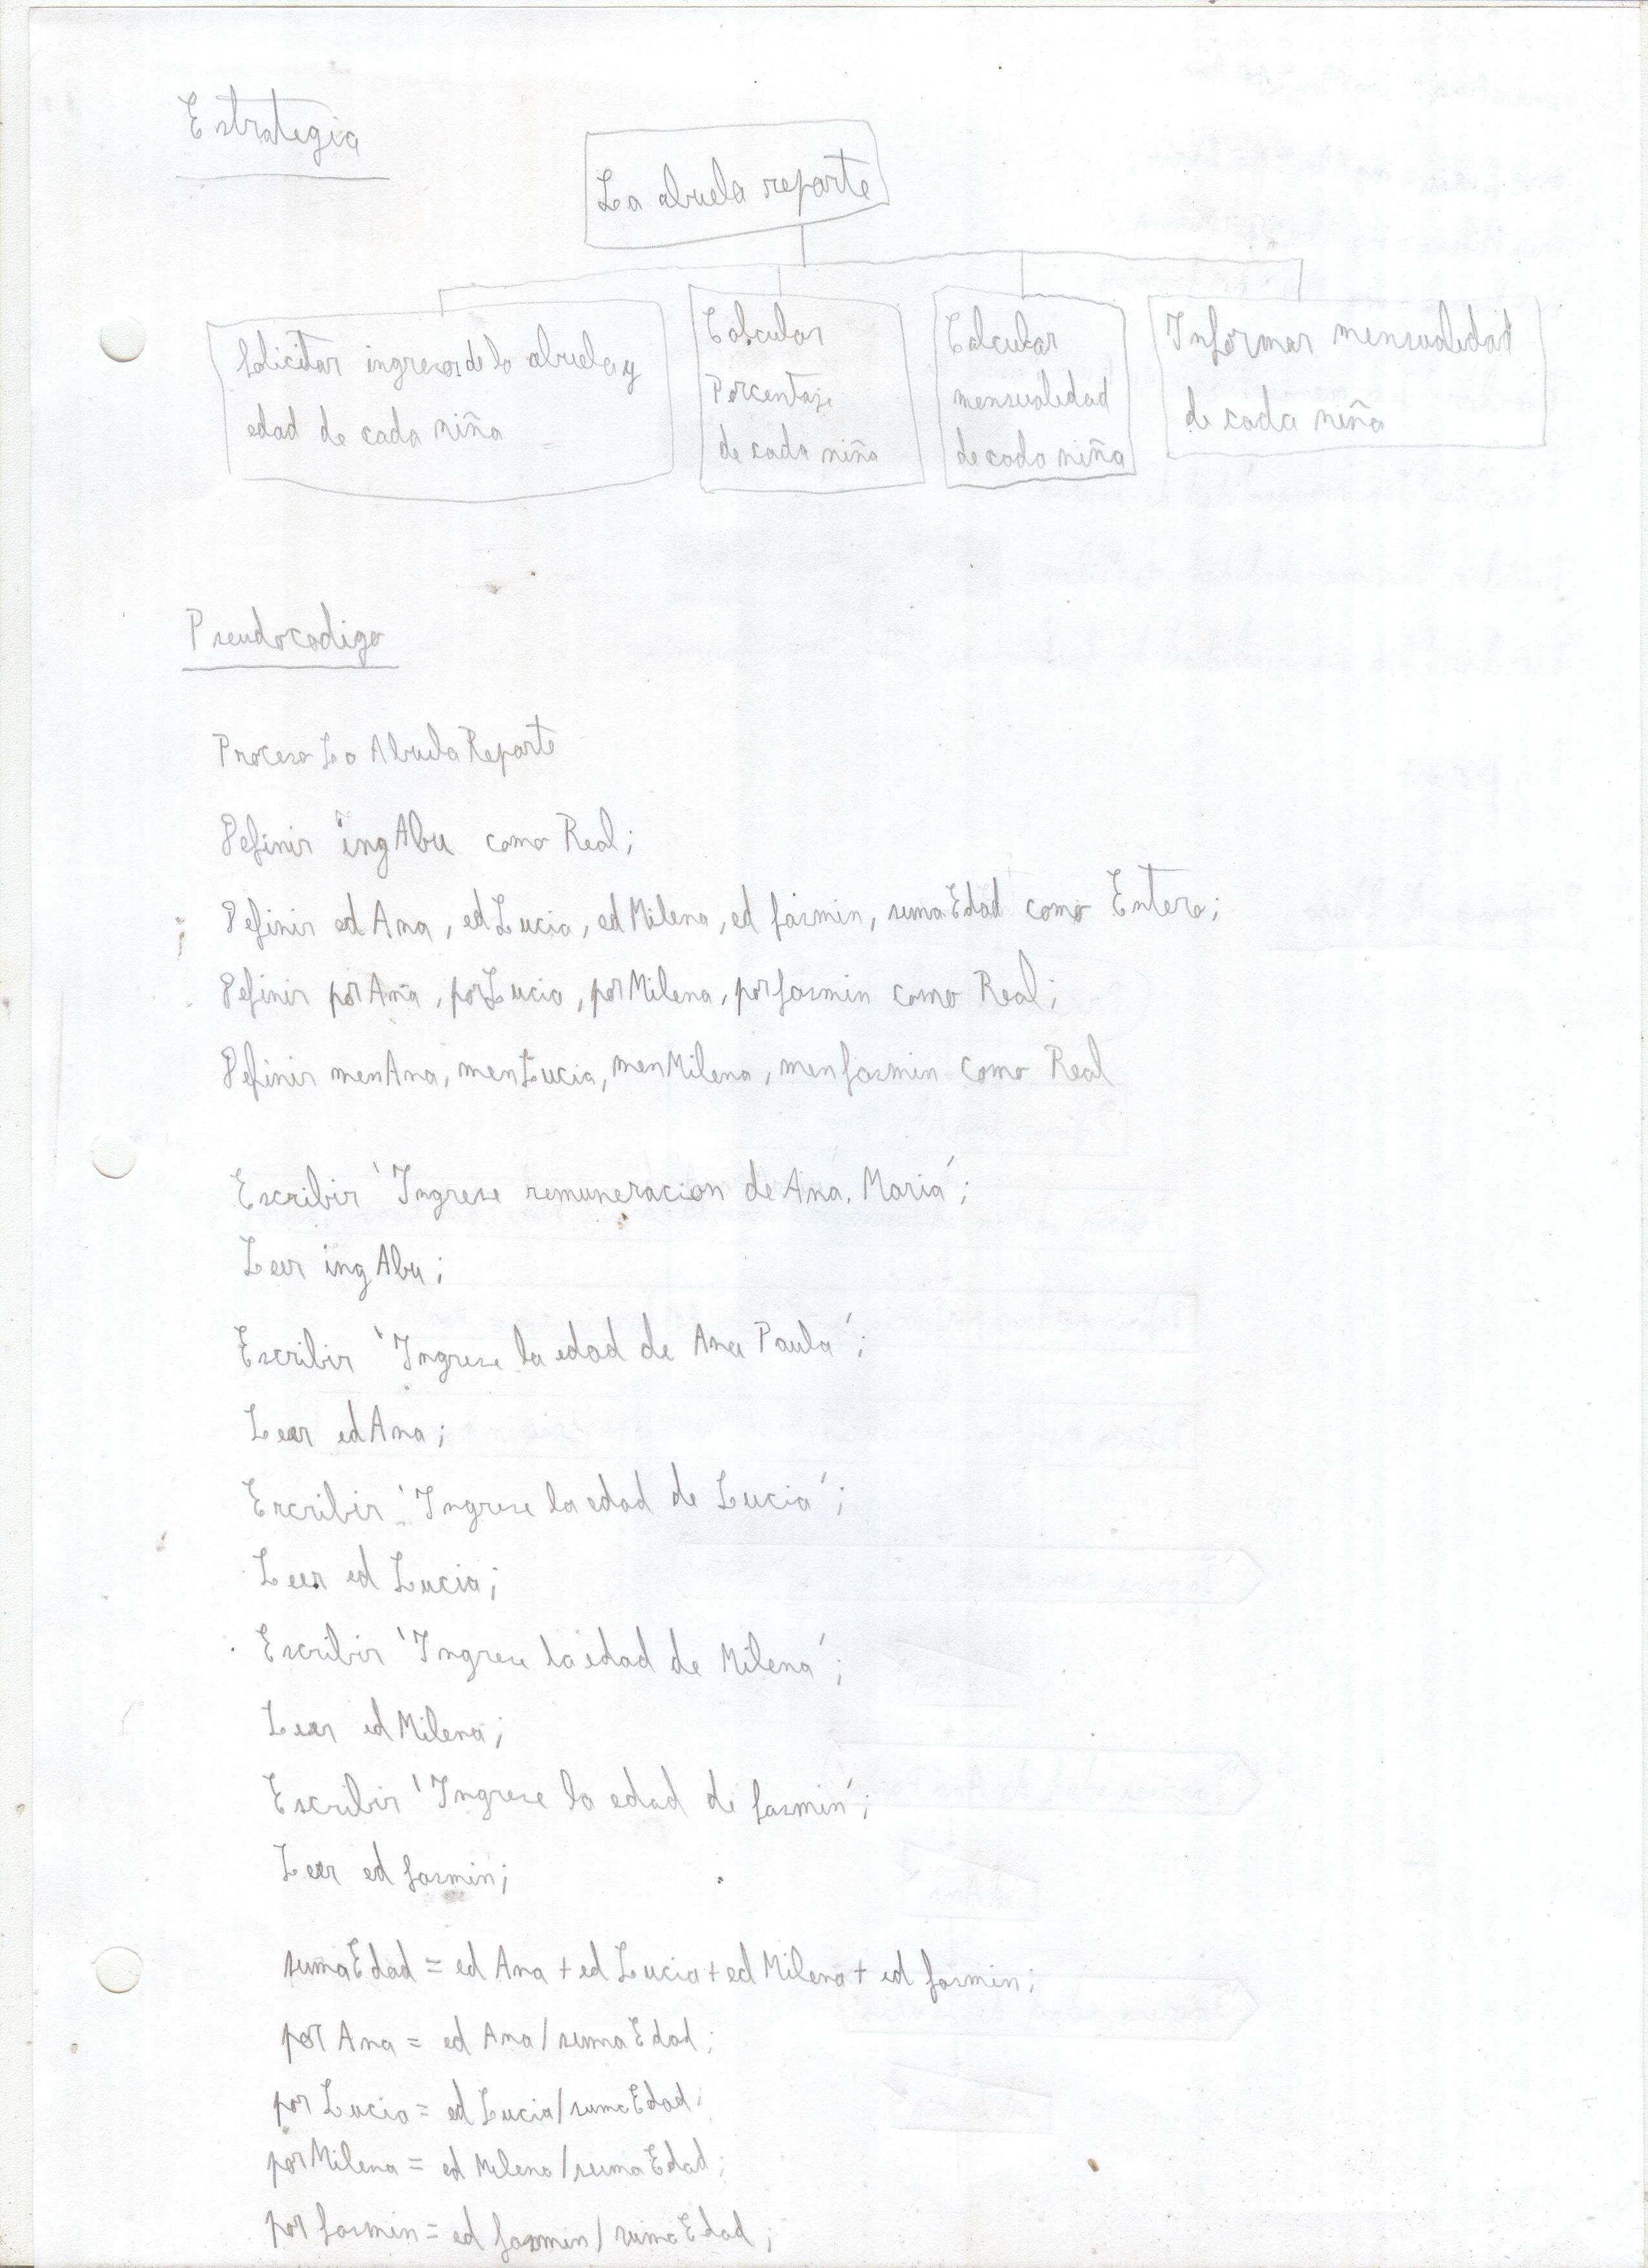 Estrategia
La abuela reporte
Solicitar ingresos de la abuela y
edad de cada niña
Calcular
Porcentaje
de cada niña
Calcular
mensualidad
de cada niña
Informar mensualidad
de cada niña
Pseudocodigo
Proceso La Abuela Reporte
Definir ingAbu como Real;
Definir edAna, edLucia, edMilena, edJasmin, sumaEdad como Entero;
Definir porAna, porLucia, porMilena, porJasmin como Real;
Definir menAna, menLucia, menMilena, menJasmin como Real
Escribir 'Ingrese remuneracion de Ana Maria';
Leer ingAbu;
Escribir 'Ingrese la edad de Ana Paula';
Leer edAna;
Escribir 'Ingrese la edad de Lucia';
Leer edLucia;
Escribir 'Ingrese la edad de Milena';
Leer edMilena;
Escribir 'Ingrese la edad de Jasmin';
Leer edJasmin;
sumaEdad = edAna + edLucia + edMilena + edJasmin;
porAna = edAna/sumaEdad;
porLucia = edLucia/sumaEdad;
porMilena = edMilena/sumaEdad;
porJasmin = edJasmin/sumaEdad;